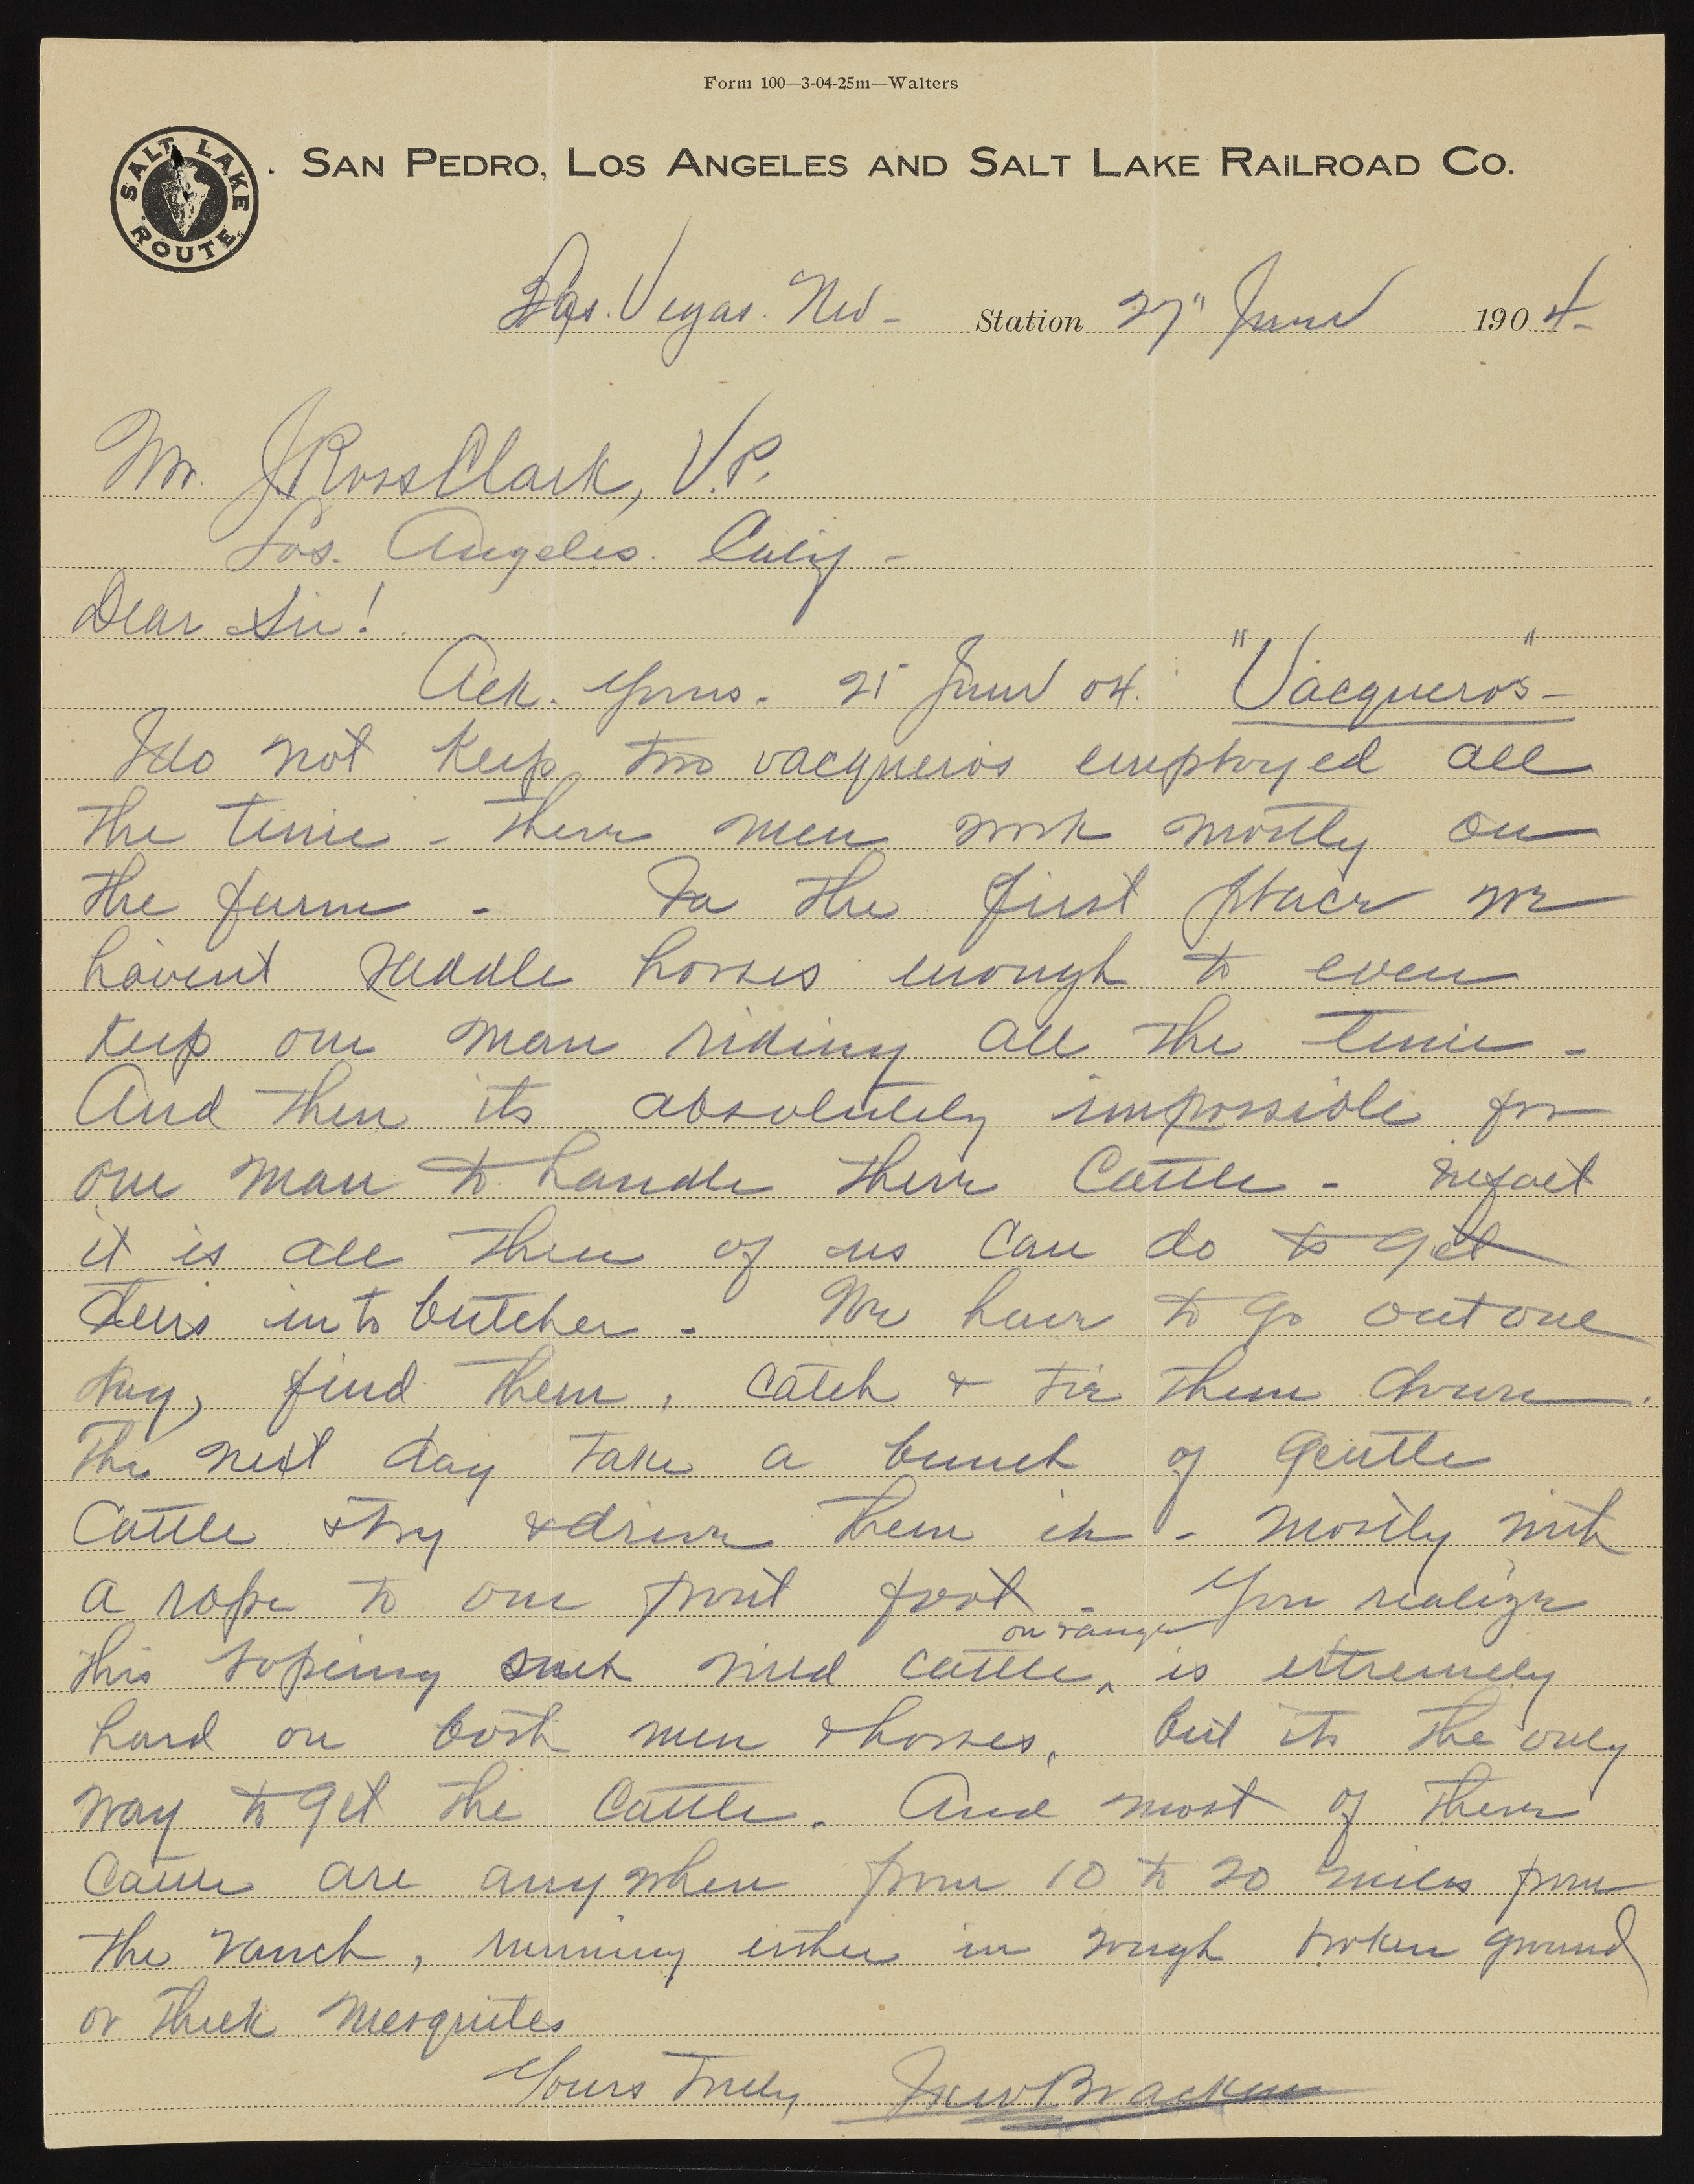 Form 100—3-04-25m—Walters
SALT LAKE ROUTE
SAN PEDRO, LOS ANGELES AND SALT LAKE RAILROAD CO.
Las. Vegas. Nev - Station 27" June 1904-
Mr. J Ross Clark, V.P.
Los. Angeles. Calif -
Dear Sir!
Ack. Yours. 25 June 04. "Vacqueros" -
I do not keep two vacqueros employed all
the time - these men work mostly on
the farm - In the first place we
havent saddle horses enough to even
keep one man riding all the time -
And then its absolutely impossible for
one man to handle these Cattle - infact
it is all three of us can do to get
this in to butcher - We have to go out one
day, find them, catch & tie them down.
The next day take a bunch of gentle
Cattle & try & drive them in - mostly with
a rope to one front foot - You realize
on range
this roping such wild cattle, is extremely
hard on both men & horses, but its the only
way to get the cattle. And most of these
cattle are any where from 10 to 20 miles from
the ranch, running either in rough broken ground
or thick mesquites
Yours Truly Bracken